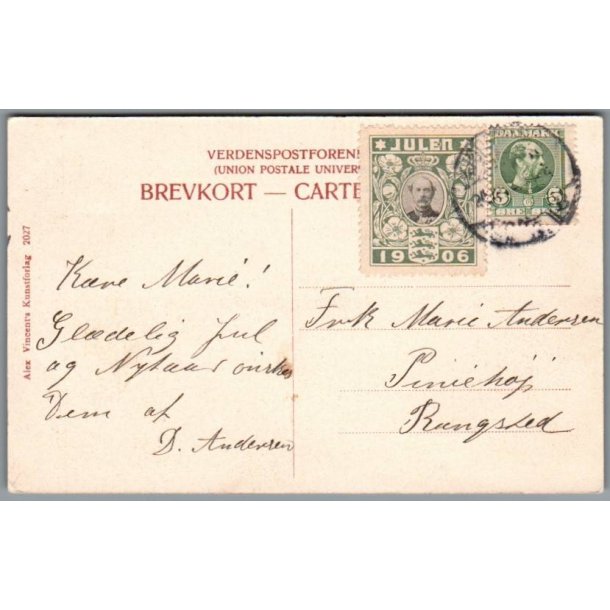 VERDENSPOSTFOREN
(UNION POSTALE UNIVER
BREVKORT — CARTE
JULEN
1906
DANMARK
5 5
ØRE
Alex Vincent's Kunstforlag 2027
Kære Marie!
Glædelig Jul
og Nytaar ønskes
Dem af
D. Andersen
Frk Marie Andersen
Piniehøj
Rungsted